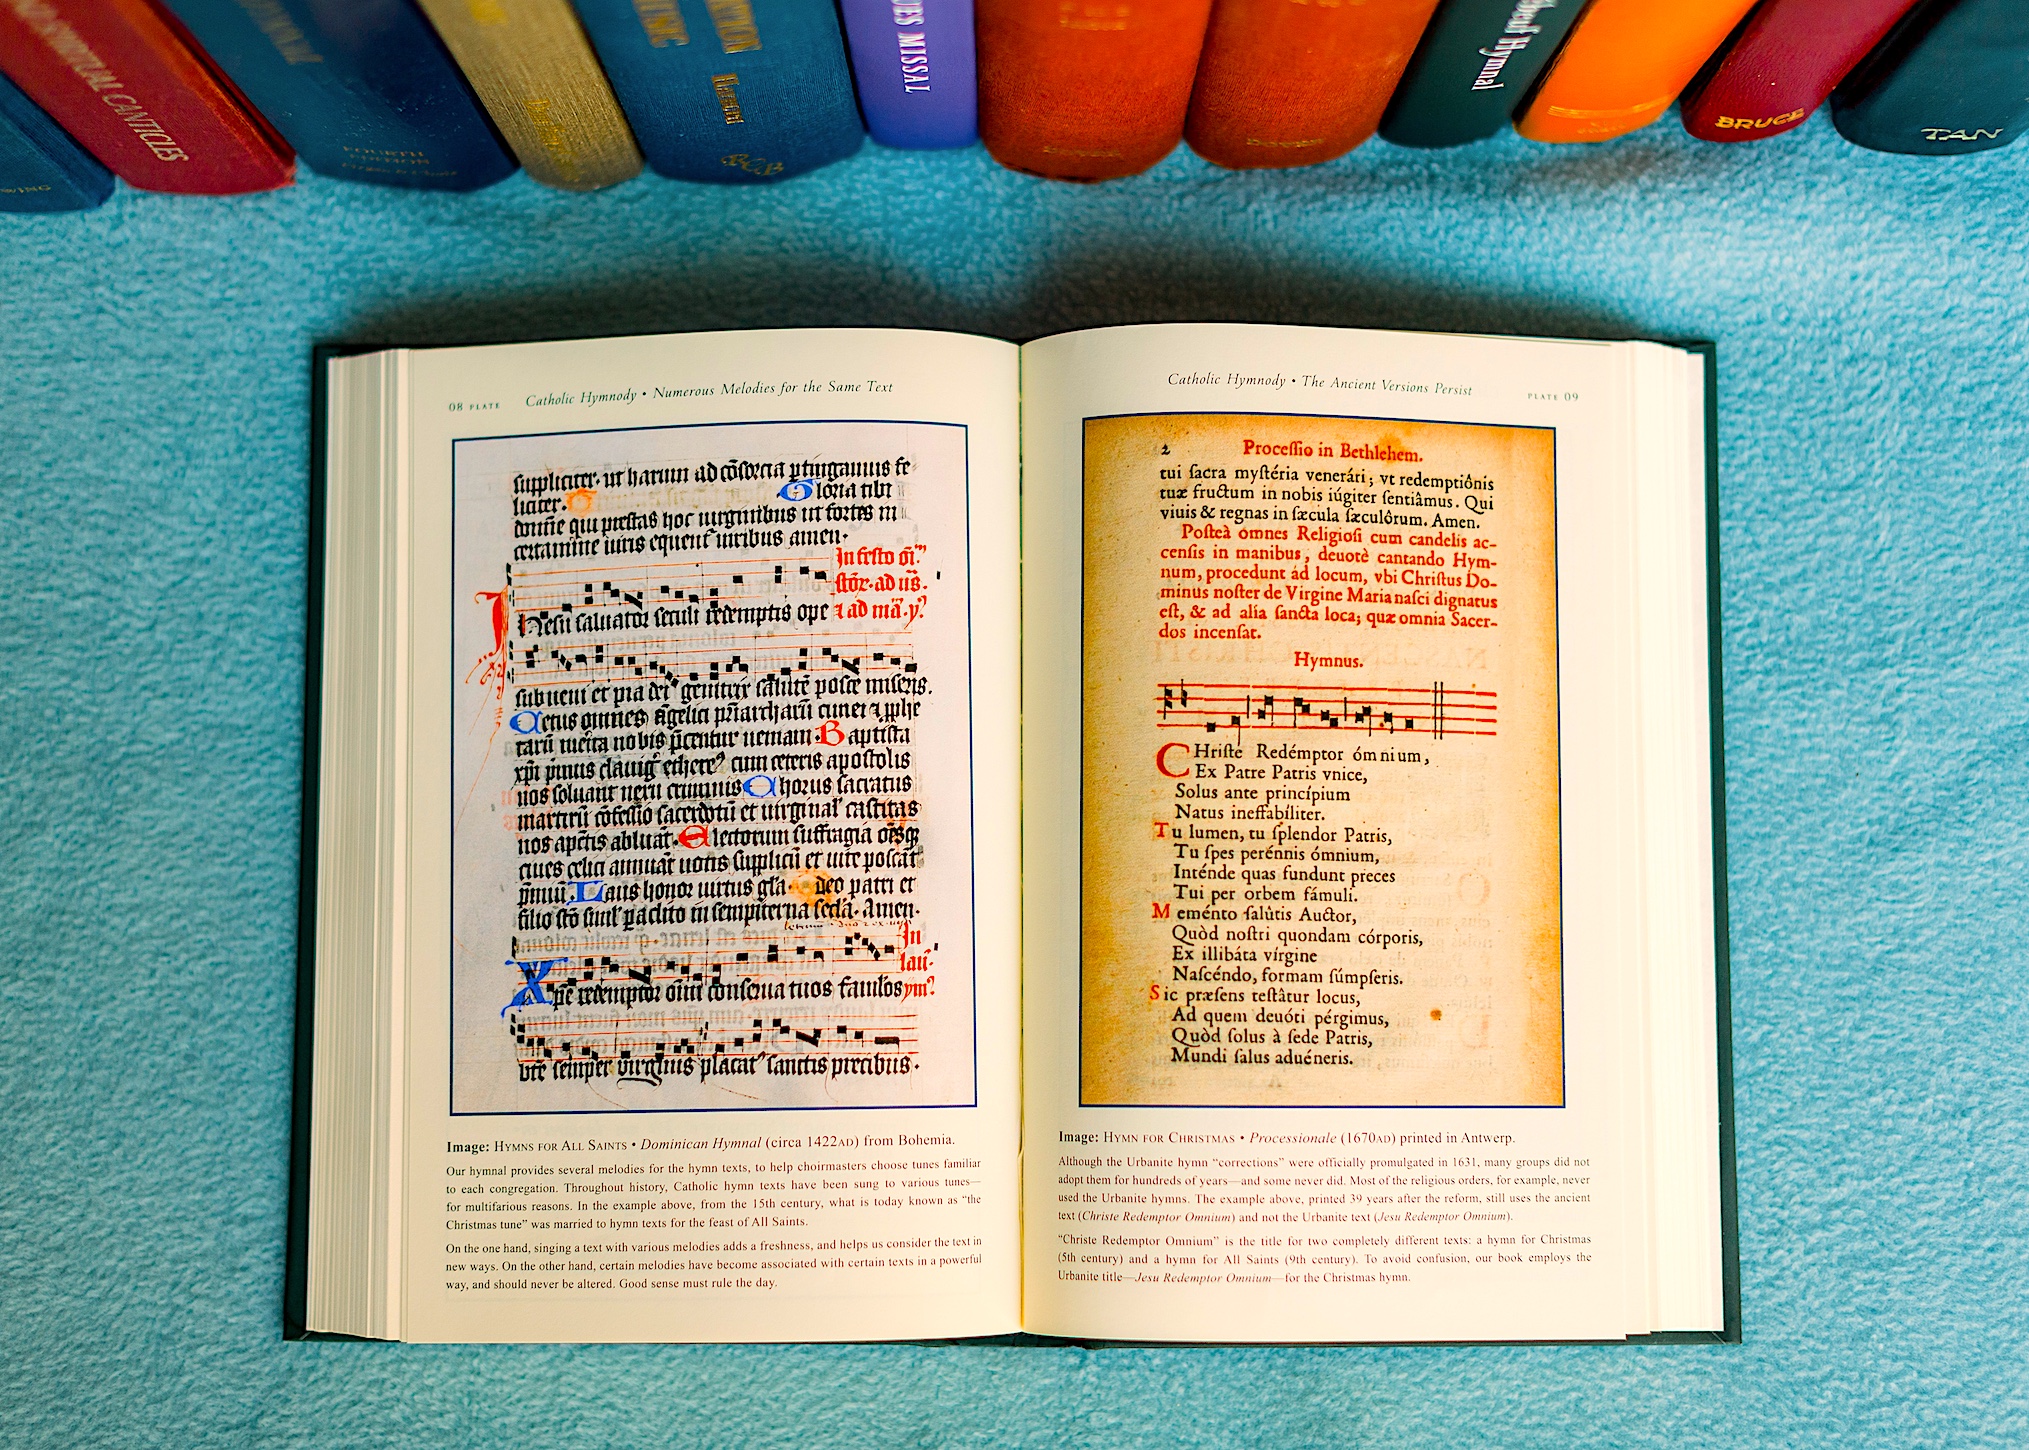 SPIRITUAL CANTICLES
FOURTH
EDITION
MISSAL
Hymnal
BRUCE
TAN
08 PLATE
Catholic Hymnody • Numerous Melodies for the Same Text
suppliciter. ut harum ad cōsorcia
liciter. Gloria tibi
domīe qui prestas hoc uirginibus ut fortes in
certamine uiris uiribus amen.
In festo
Ihesu saluator seculi redemptis ope
subueni et pia dei genitrix salutē posce miseris.
Cetus omnes āgelici
nobis ueniam. Baptista
cum ceteris apostolis
nos soluant nexu criminis Chorus sacratus
martirū sacerdotū et uirginal castitas
nos abluat. Electorum suffragia
ciues celici annuāt uotis et uite
Laus honor uirtus deo patri et
filio in sempiterna Amen.
In
redemptor conserua tuos famlos
semper virginis sanctis precibus.
Image: HYMNS FOR ALL SAINTS • Dominican Hymnal (circa 1422AD) from Bohemia.
Our hymnal provides several melodies for the hymn texts, to help choirmasters choose tunes familiar
to each congregation. Throughout history, Catholic hymn texts have been sung to various tunes—
for multifarious reasons. In the example above, from the 15th century, what is today known as “the
Christmas tune” was married to hymn texts for the feast of All Saints.
On the one hand, singing a text with various melodies adds a freshness, and helps us consider the text in
new ways. On the other hand, certain melodies have become associated with certain texts in a powerful
way, and should never be altered. Good sense must rule the day.
Catholic Hymnody • The Ancient Versions Persist
PLATE 09
2 Processio in Bethlehem.
tui sacra mystéria venerári; vt redemptiônis
tuæ fructum in nobis iúgiter sentiâmus. Qui
viuis & regnas in sæcula sæculôrum. Amen.
Posteà omnes Religiosi cum candelis ac-
censis in manibus, deuotè cantando Hym-
num, procedunt ád locum, vbi Christus Do-
minus noster de Virgine Maria nasci dignatus
est, & ad alia sancta loca; quæ omnia Sacer-
dos incensat.
Hymnus.
CHriste Redémptor ómnium,
Ex Patre Patris vnice,
Solus ante princípium
Natus ineffabíliter.
Tu lumen, tu splendor Patris,
Tu spes perénnis ómnium,
Inténde quas fundunt preces
Tui per orbem fámuli.
Meménto salûtis Auctor,
Quòd nostri quondam córporis,
Ex illibáta vírgine
Nascéndo, formam súmpseris.
Sic præsens testâtur locus,
Ad quem deuóti pérgimus,
Quòd solus à sede Patris,
Mundi salus aduéneris.
Image: HYMN FOR CHRISTMAS • Processionale (1670AD) printed in Antwerp.
Although the Urbanite hymn “corrections” were officially promulgated in 1631, many groups did not
adopt them for hundreds of years—and some never did. Most of the religious orders, for example, never
used the Urbanite hymns. The example above, printed 39 years after the reform, still uses the ancient
text (Christe Redemptor Omnium) and not the Urbanite text (Jesu Redemptor Omnium).
“Christe Redemptor Omnium” is the title for two completely different texts: a hymn for Christmas
(5th century) and a hymn for All Saints (9th century). To avoid confusion, our book employs the
Urbanite title—Jesu Redemptor Omnium—for the Christmas hymn.